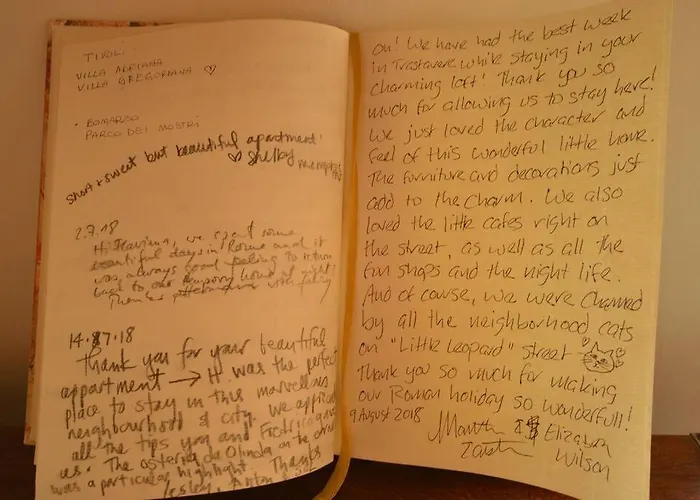 TIVOLI
VILLA ADRIANA
VILLA GREGORIANA ♡
• BOMARZO
PARCO DEI MOSTRI
short + sweet but beautiful apartment!
♡ Shelby
2.7.18
Hi Flaviana, we spent some
beautiful days in Rome and it
was always good feeling to return
back to our temporary home at night!
14.07.18
Thank you for your beautiful
appartment → It was the perfect
place to stay in this marvellous
neighbourhood & city. We
all the tips you and
us. The osteria da Olindo on the
was a particular highlight. Thanks
Lesley,
oh! We have had the best week
in Trastavere while staying in your
charming loft! Thank you so
much for allowing us to stay here!
We just loved the character and
feel of this wonderful little home.
The furniture and decorations just
add to the charm. We also
loved the little cafes right on
the street, as well as all the
fun shops and the night life.
And of course, we were charmed
by all the neighborhood cats
on "Little Leopard" street
Thank you so much for making
our Roman holiday so wonderfull!
9 August 2018
Elizabeth
Wilson